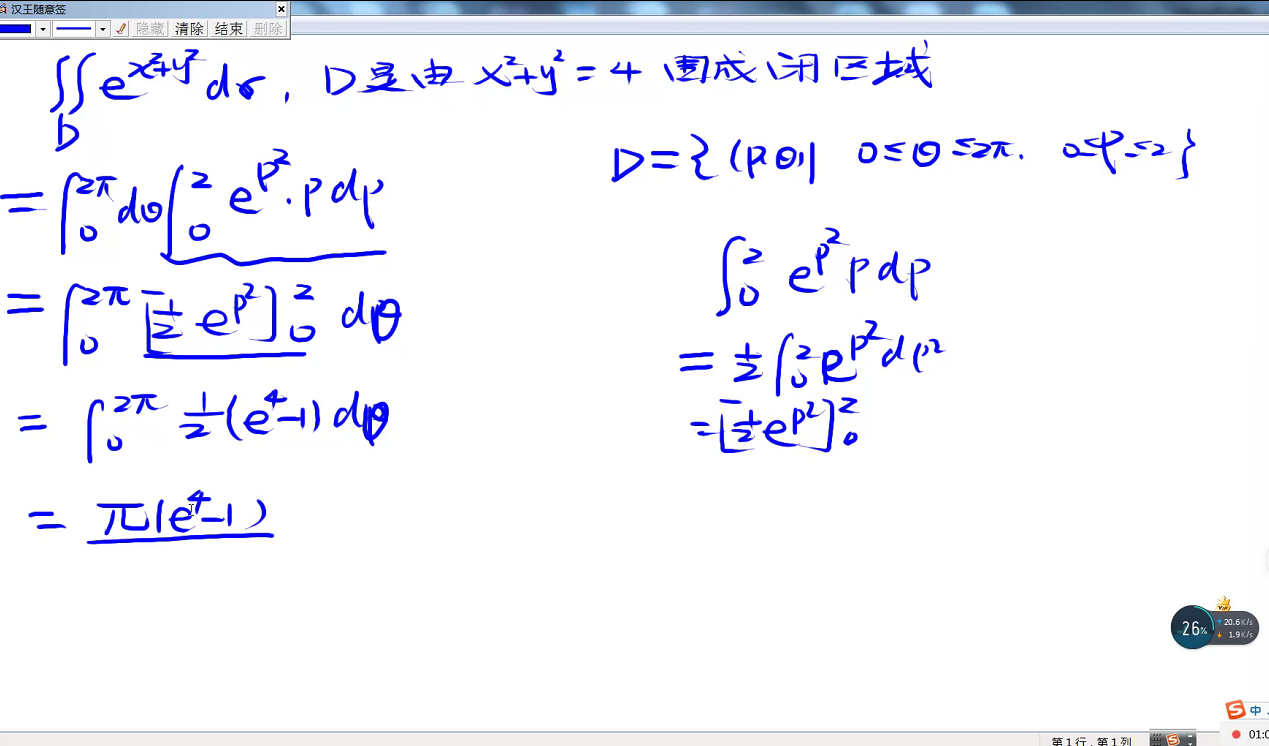 汉王随意签
隐藏 清除 结束 删除
∬_D e^{x²+y²} dσ, D是由 x²+y²=4 围成闭区域
D={(ρ,θ)| 0≤θ≤2π. 0≤ρ≤2}
=∫_0^{2π} dθ ∫_0^2 e^{ρ²}·ρ dρ
=∫_0^{2π} [½ e^{ρ²}]_0^2 dθ
=∫_0^{2π} ½(e⁴-1) dθ
=π(e⁴-1)
∫_0^2 e^{ρ²} ρ dρ
=½∫_0^2 e^{ρ²} dρ²
=[½ e^{ρ²}]_0^2
26%
20.6K/s
1.9K/s
中
第1行，第1列